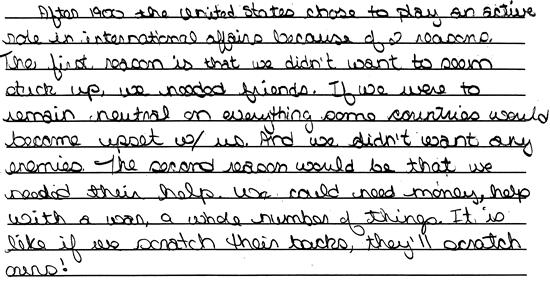 After 1900 the United States chose to play an active
role in international affairs because of 2 reasons.
The first reason is that we didn't want to seem
stuck up, we needed friends. If we were to
remain neutral on everything some countries would
become upset w/ us. And we didn't want any
enemies. The second reason would be that we
needed their help. We could need money, help
with a war, a whole number of things. It is
like if we scratch their backs, they'll scratch
ours!